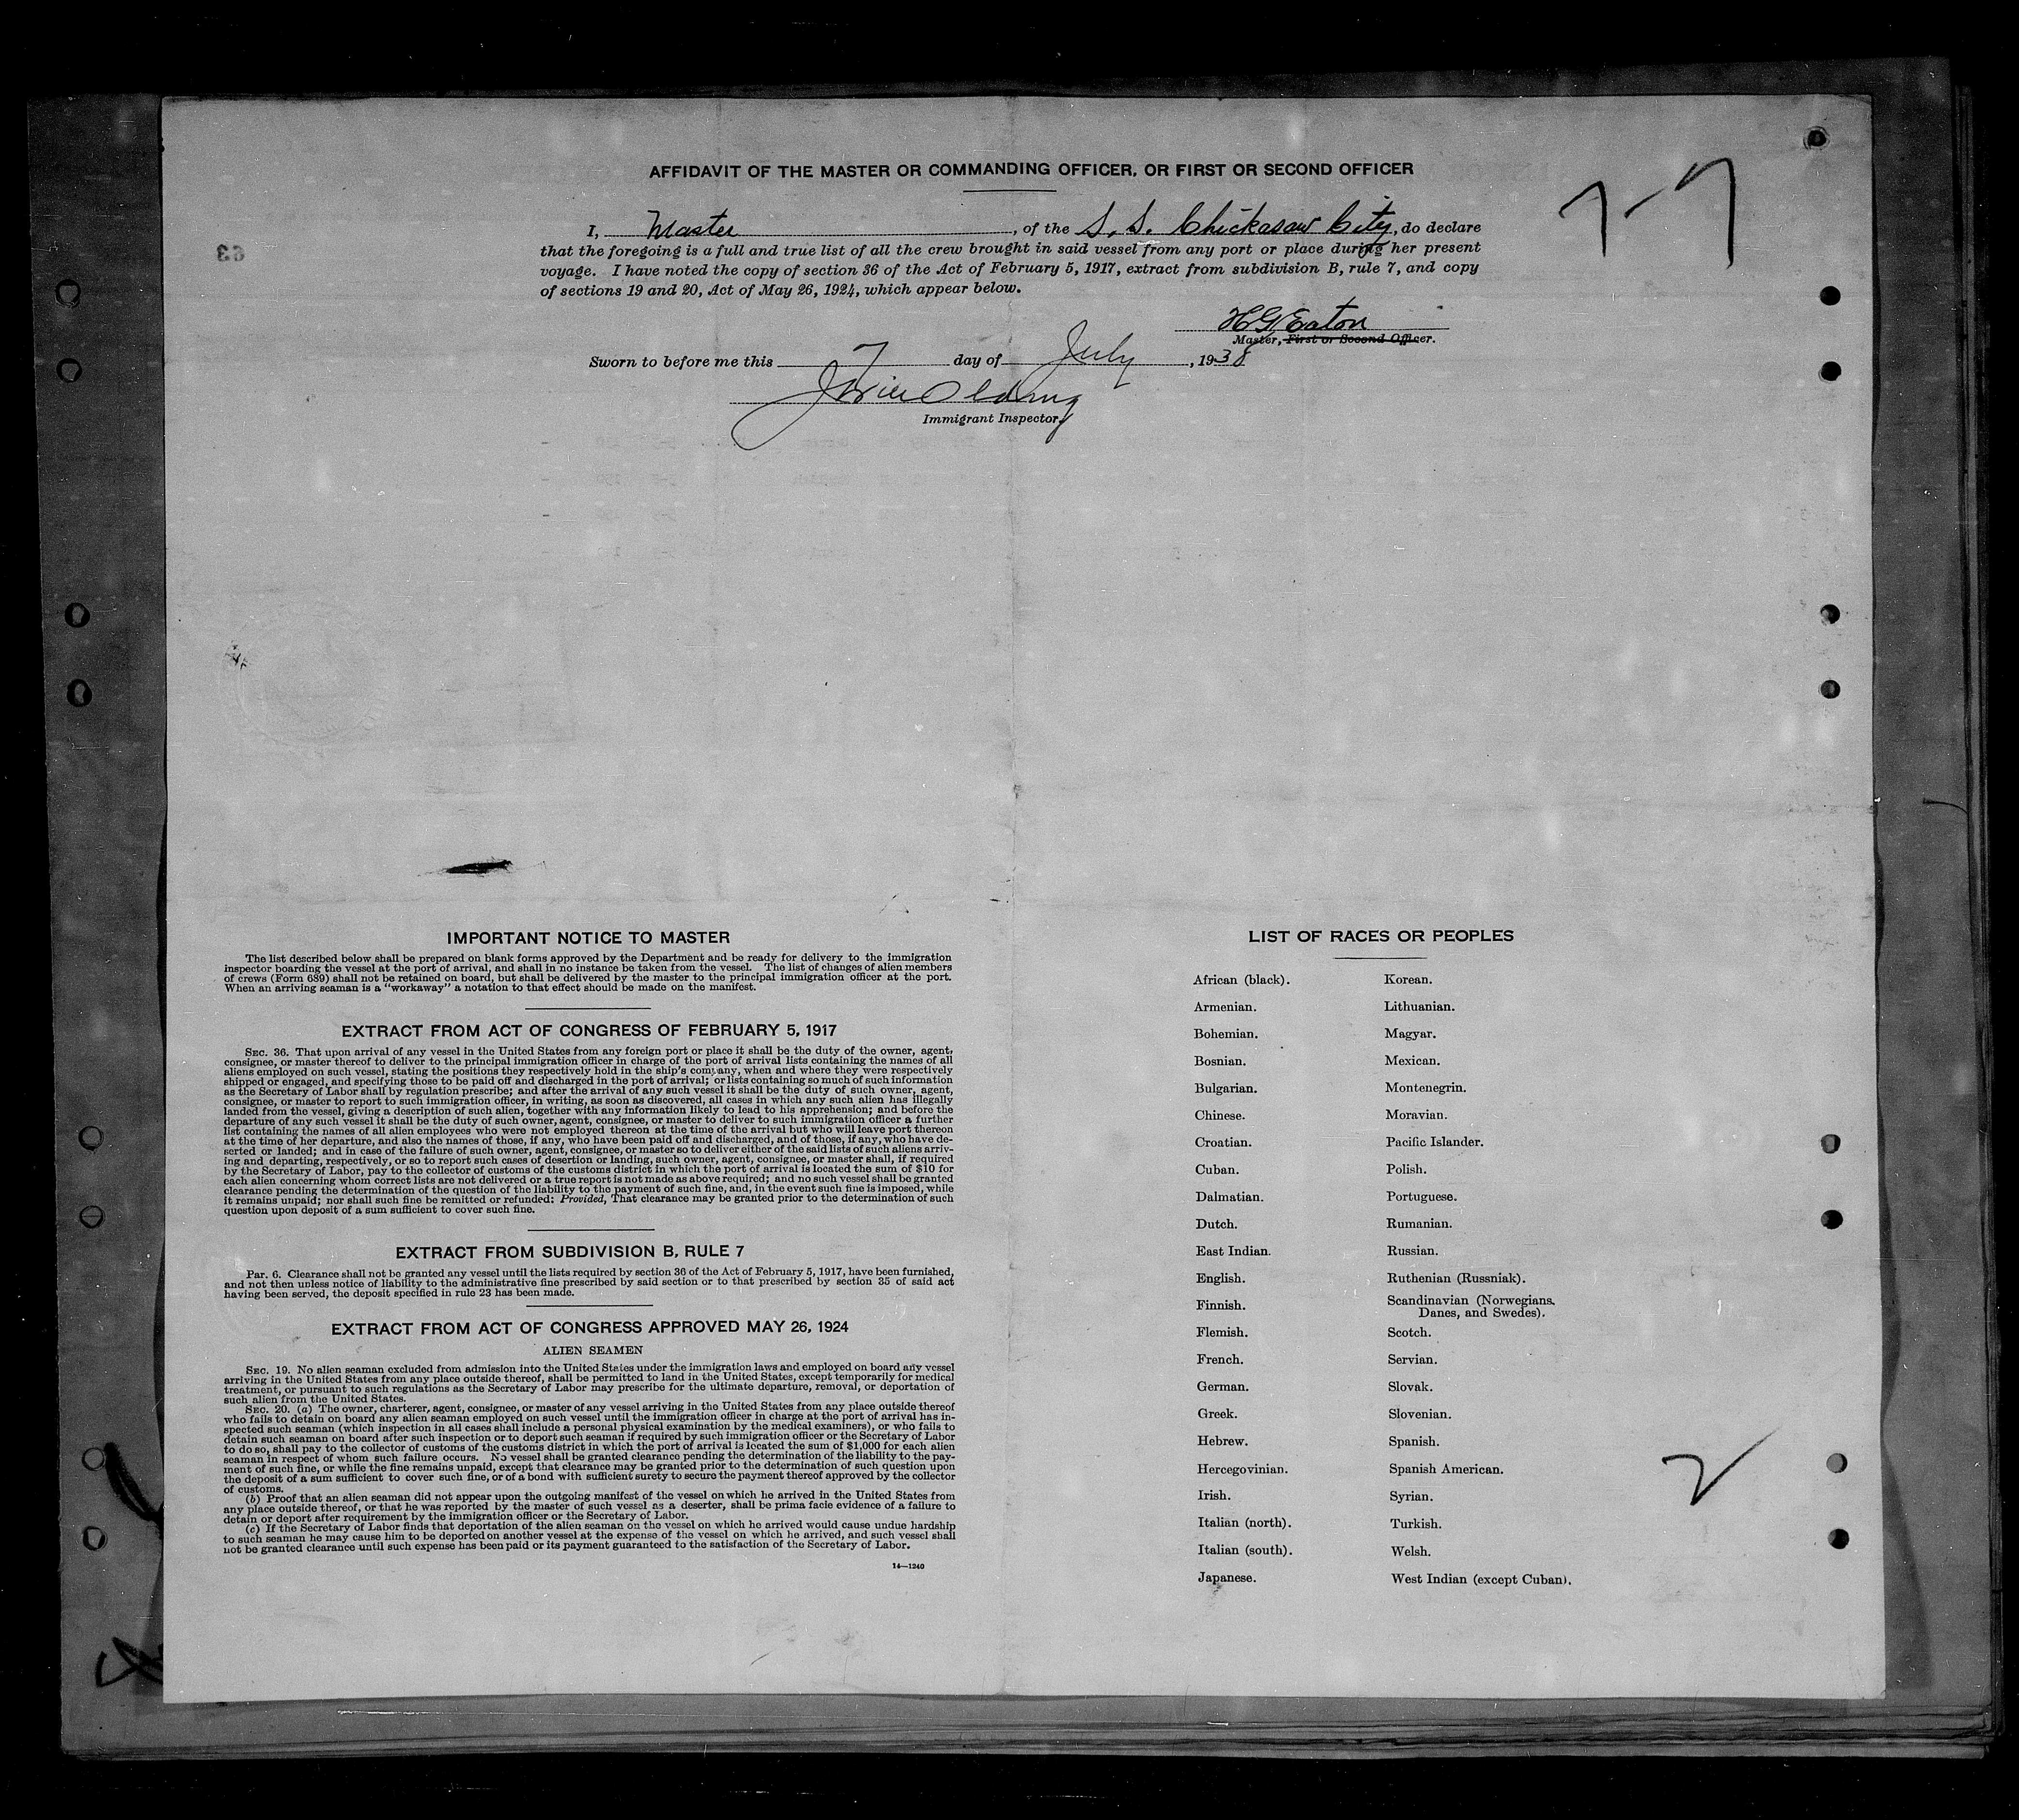 AFFIDAVIT OF THE MASTER OR COMMANDING OFFICER, OR FIRST OR SECOND OFFICER
7-7
I, Master, of the S. S. Chickasaw City, do declare
that the foregoing is a full and true list of all the crew brought in said vessel from any port or place during her present
voyage. I have noted the copy of section 36 of the Act of February 5, 1917, extract from subdivision B, rule 7, and copy
of sections 19 and 20, Act of May 26, 1924, which appear below.
63
H G Eaton
Master, First or Second Officer.
Sworn to before me this 7 day of July, 1938
Immigrant Inspector.
IMPORTANT NOTICE TO MASTER
The list described below shall be prepared on blank forms approved by the Department and be ready for delivery to the immigration
inspector boarding the vessel at the port of arrival, and shall in no instance be taken from the vessel. The list of changes of alien members
of crews (Form 689) shall not be retained on board, but shall be delivered by the master to the principal immigration officer at the port.
When an arriving seaman is a "workaway" a notation to that effect should be made on the manifest.
EXTRACT FROM ACT OF CONGRESS OF FEBRUARY 5, 1917
SEC. 36. That upon arrival of any vessel in the United States from any foreign port or place it shall be the duty of the owner, agent,
consignee, or master thereof to deliver to the principal immigration officer in charge of the port of arrival lists containing the names of all
aliens employed on such vessel, stating the positions they respectively hold in the ship's company, when and where they were respectively
shipped or engaged, and specifying those to be paid off and discharged in the port of arrival; or lists containing so much of such information
as the Secretary of Labor shall by regulation prescribe; and after the arrival of any such vessel it shall be the duty of such owner, agent,
consignee, or master to report to such immigration officer, in writing, as soon as discovered, all cases in which any such alien has illegally
landed from the vessel, giving a description of such alien, together with any information likely to lead to his apprehension; and before the
departure of any such vessel it shall be the duty of such owner, agent, consignee, or master to deliver to such immigration officer a further
list containing the names of all alien employees who were not employed thereon at the time of the arrival but who will leave port thereon
at the time of her departure, and also the names of those, if any, who have been paid off and discharged, and of those, if any, who have de-
serted or landed; and in case of the failure of such owner, agent, consignee, or master so to deliver either of the said lists of such aliens arriv-
ing and departing, respectively, or so to report such cases of desertion or landing, such owner, agent, consignee, or master shall, if required
by the Secretary of Labor, pay to the collector of customs of the customs district in which the port of arrival is located the sum of $10 for
each alien concerning whom correct lists are not delivered or a true report is not made as above required; and no such vessel shall be granted
clearance pending the determination of the question of the liability to the payment of such fine, and, in the event such fine is imposed, while
it remains unpaid; nor shall such fine be remitted or refunded: Provided, That clearance may be granted prior to the determination of such
question upon deposit of a sum sufficient to cover such fine.
EXTRACT FROM SUBDIVISION B, RULE 7
PAR. 6. Clearance shall not be granted any vessel until the lists required by section 36 of the Act of February 5, 1917, have been furnished,
and not then unless notice of liability to the administrative fine prescribed by said section or to that prescribed by section 35 of said act
having been served, the deposit specified in rule 23 has been made.
EXTRACT FROM ACT OF CONGRESS APPROVED MAY 26, 1924
ALIEN SEAMEN
SEC. 19. No alien seaman excluded from admission into the United States under the immigration laws and employed on board any vessel
arriving in the United States from any place outside thereof, shall be permitted to land in the United States, except temporarily for medical
treatment, or pursuant to such regulations as the Secretary of Labor may prescribe for the ultimate departure, removal, or deportation of
such alien from the United States.
SEC. 20. (a) The owner, charterer, agent, consignee, or master of any vessel arriving in the United States from any place outside thereof
who fails to detain on board any alien seaman employed on such vessel until the immigration officer in charge at the port of arrival has in-
spected such seaman (which inspection in all cases shall include a personal physical examination by the medical examiners), or who fails to
detain such seaman on board after such inspection or to deport such seaman if required by such immigration officer or the Secretary of Labor
to do so, shall pay to the collector of customs of the customs district in which the port of arrival is located the sum of $1,000 for each alien
seaman in respect of whom such failure occurs. No vessel shall be granted clearance pending the determination of the liability to the pay-
ment of such fine, or while the fine remains unpaid, except that clearance may be granted prior to the determination of such question upon
the deposit of a sum sufficient to cover such fine, or of a bond with sufficient surety to secure the payment thereof approved by the collector
of customs.
(b) Proof that an alien seaman did not appear upon the outgoing manifest of the vessel on which he arrived in the United States from
any place outside thereof, or that he was reported by the master of such vessel as a deserter, shall be prima facie evidence of a failure to
detain or deport after requirement by the immigration officer or the Secretary of Labor.
(c) If the Secretary of Labor finds that deportation of the alien seaman on the vessel on which he arrived would cause undue hardship
to such seaman he may cause him to be deported on another vessel at the expense of the vessel on which he arrived, and such vessel shall
not be granted clearance until such expense has been paid or its payment guaranteed to the satisfaction of the Secretary of Labor.
14—1240
LIST OF RACES OR PEOPLES
African (black).
Armenian.
Bohemian.
Bosnian.
Bulgarian.
Chinese.
Croatian.
Cuban.
Dalmatian.
Dutch.
East Indian.
English.
Finnish.
Flemish.
French.
German.
Greek.
Hebrew.
Hercegovinian.
Irish.
Italian (north).
Italian (south).
Japanese.
Korean.
Lithuanian.
Magyar.
Mexican.
Montenegrin.
Moravian.
Pacific Islander.
Polish.
Portuguese.
Rumanian.
Russian.
Ruthenian (Russniak).
Scandinavian (Norwegians,
Danes, and Swedes).
Scotch.
Servian.
Slovak.
Slovenian.
Spanish.
Spanish American.
Syrian.
Turkish.
Welsh.
West Indian (except Cuban).
2